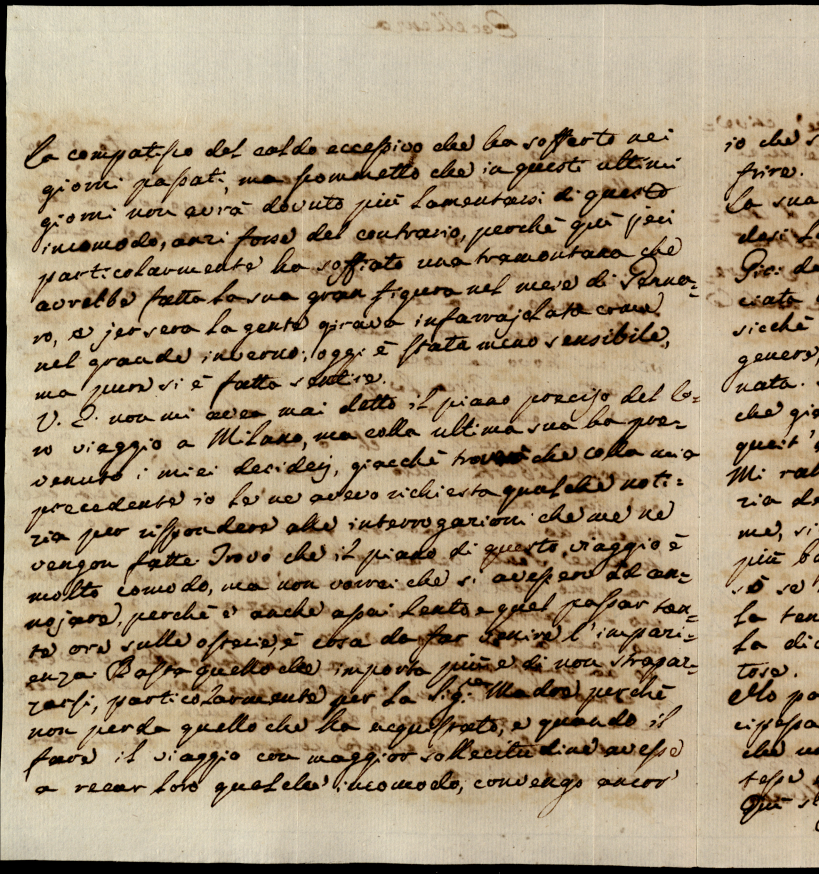 La compatisco del caldo eccessivo che ha sofferto nei
giorni passati, ma scommetto che in questi ultimi
giorni non avrà dovuto più lamentarsi di questo
incomodo, anzi forse del contrario, perchè quì jeri
particolarmente ha soffiato una tramontana che
avrebbe fatta la sua gran figura nel mese di Genna=
ro, e jersera la gente girava infarrajolata come
nel grande inverno; oggi è stata meno sensibile,
ma pure si è fatta sentire.
V. E. non mi avea mai detto il piano preciso del lo=
ro viaggio a Milano, ma colla ultima sua ha pre=
venuto i miei desiderj, giacchè che colla mia
precedente io le ne avevo richiesta qualche noti=
zia per rispondere alle interrogazioni che me ne
vengon fatte. Trovo che il piano di questo viaggio è
molto comodo, ma non vorrei che si avessero ad an=
nojare, perchè è anche assai lento e quel passar tan=
te ore sulle osterie, è cosa da far venire l'impazi=
enza. Basta quello che importa più è di non strapaz=
zarsi, particolarmente per la Sig.ra Madre, perchè
non perda quello che ha acquistato, e quando il
fare il viaggio con maggior sollecitudine avesse
a recar loro qualche incomodo, convengo ancor
io che
frire.
La sua
ciata
sicchè
genere,
nata.
che gio
quest'
Mi ral
zia de
me, si
più
se
la ten
la
tore.
che